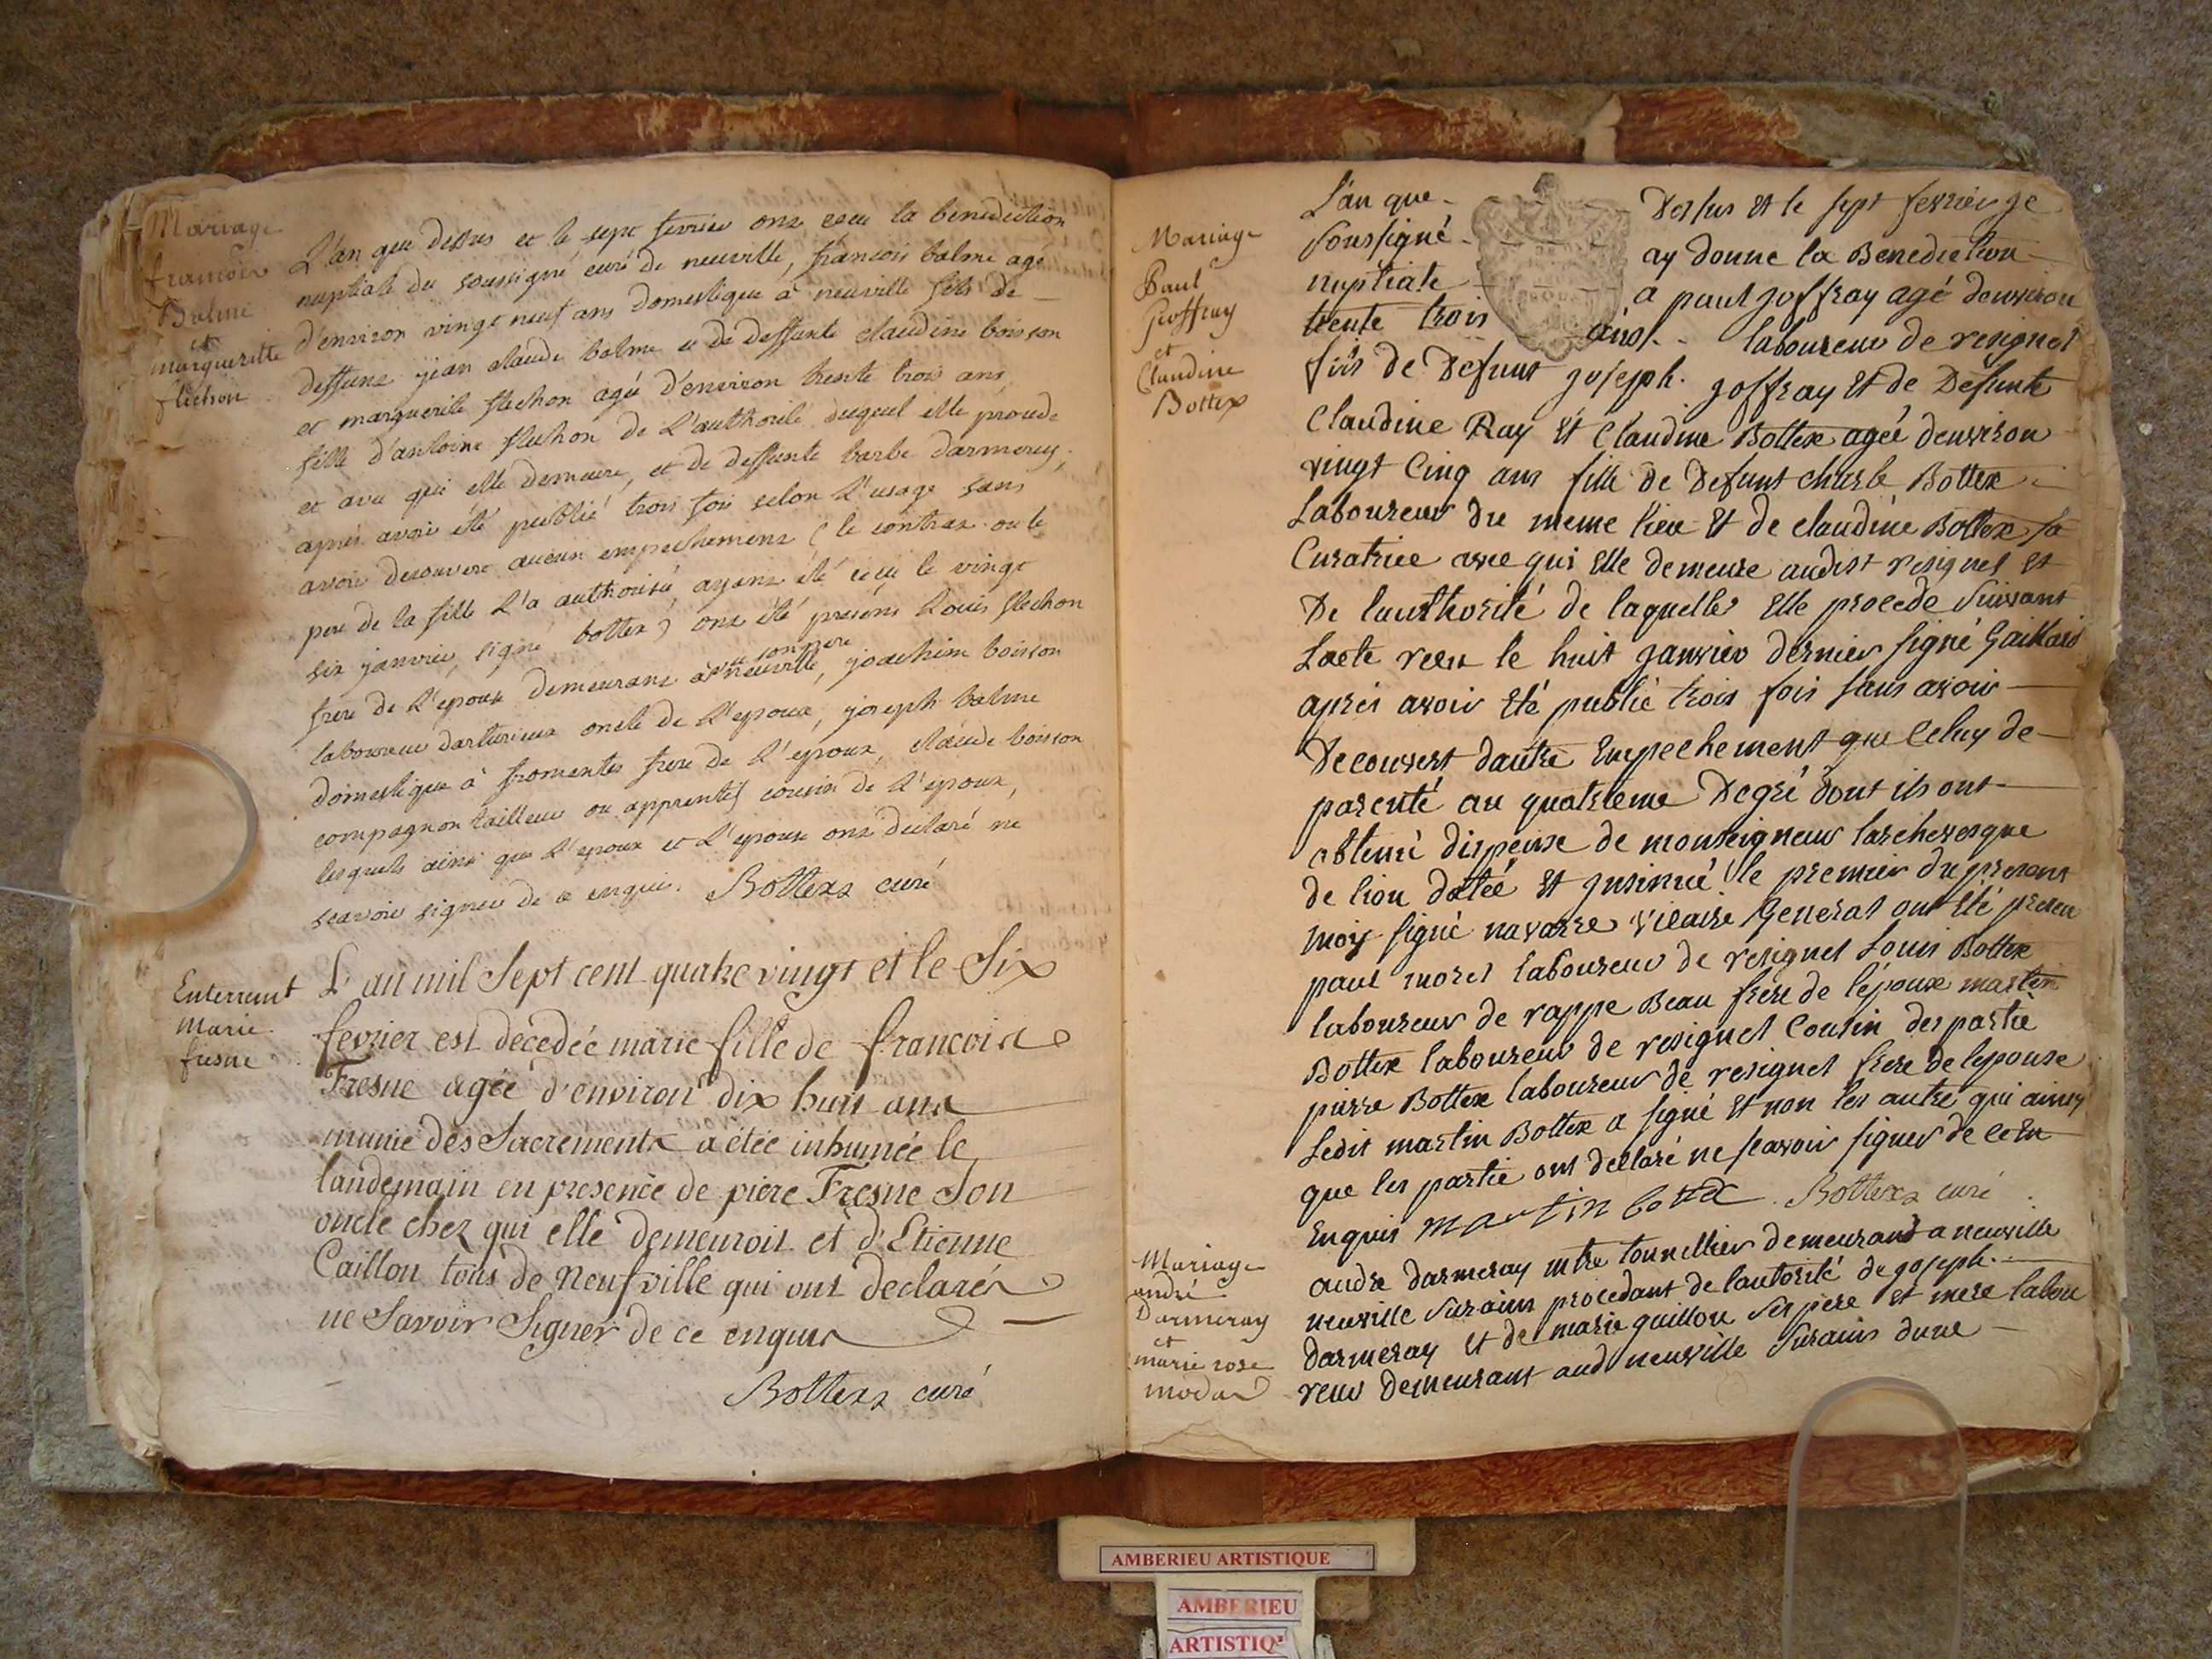 Mariage
francois
Balme
et
marguerite
flechon
L'an que dessus et le sept fevrier ont recu la benediction
nuptiale du soussigné curé de neuville, francois balme agé
d'environ vingt neuf ans domestique à neuville fils de
deffunt jean claude balme et de deffunte claudine boisson
et marguerite flechon agée d'environ trente trois ans
fille d'antoine flechon de l'authorité duquel elle procede
et avec qui elle demeure, et de deffunte barbe darmerey,
après avoir été publié trois fois selon l'usage sans
avoir decouvert aucun empechement (le contrat ou le
pere de la fille l'a authorisée ayant été recu le vingt
six janvier, signé bottex) ont été présens Louis flechon
et son pere
frere de l'epouse demeurant à neuville, joachim boisson
laboureur oncle de l'epoux, joseph balme
domestique à fromentes frere de l'époux, claude boisson
compagnon tailleur ou apprentif cousin de l'epoux,
lesquels ainsi que l'epoux et l'epouse ont declaré ne
scavoir signer de ce enquis. Bottex curé
Enterremt
Marie
fresne
L'an mil Sept cent quatre vingt et le Six
fevrier est décedée marie fille de francois
Fresne agée d'environ dix huit ans
munie des Sacrements a étée inhumée le
landemain en presence de piere Fresne Son
oncle chez qui elle demeuroit et d'Etienne
Caillon tous de Neufville qui ont declarés
ne Savoir Signer de ce enquis
Bottex curé
Mariage
Paul
Geoffray
et
Claudine
Bottex
L'an que dessus et le sept fevrier je
soussigné ay donne la Benediction
nuptiale a paul joffray agé denviron
trente trois ans laboureur de resignel
fils de Defunt joseph joffray Et de Defunte
Claudine Ray Et Claudine Bottex agée denviron
vingt Cinq ans fille de Defunt Charle Bottex
Laboureur du meme lieu Et de claudine Bottex sa
Curatrice avec qui Elle demeure audit resignel et
De lauthorité de laquelle Elle procede suivant
Lacte receu le huit janvier dernier signé Gaillard
aprés avoir Eté publié trois fois sans avoir
Decouvert dautre Empechement que Celuy de
parenté au quatrieme Degré dont ils ont
obtenu dispense de monseigneur larchevesque
de lion datée et insinué le premier du present
mois signé navarre vicaire general ont Eté presen
paul morel laboureur de resignel Louis Bottex
laboureur de rappe Beau frére de l'époux martin
Bottex laboureur de resignel Cousin des partie
pierre Bottex laboureur de resignel frere de lepouse
Ledit martin Bottex a signé Et non les autre qui ainsy
que les partie ont declaré ne scavoir signer de ce En
Enquis martin botex Bottex curé
Mariage
andré
Darmeray
et
marie rose
modar
andre darmeray mtre tonnellier demeurant a neuville
neuville surains procedant de lautorité de joseph
darmeray Et de marie guillon ses pere et mere labou
reur demeurant aud neuville surains dune
AMBERIEU ARTISTIQUE
AMBERIEU
ARTISTIQ